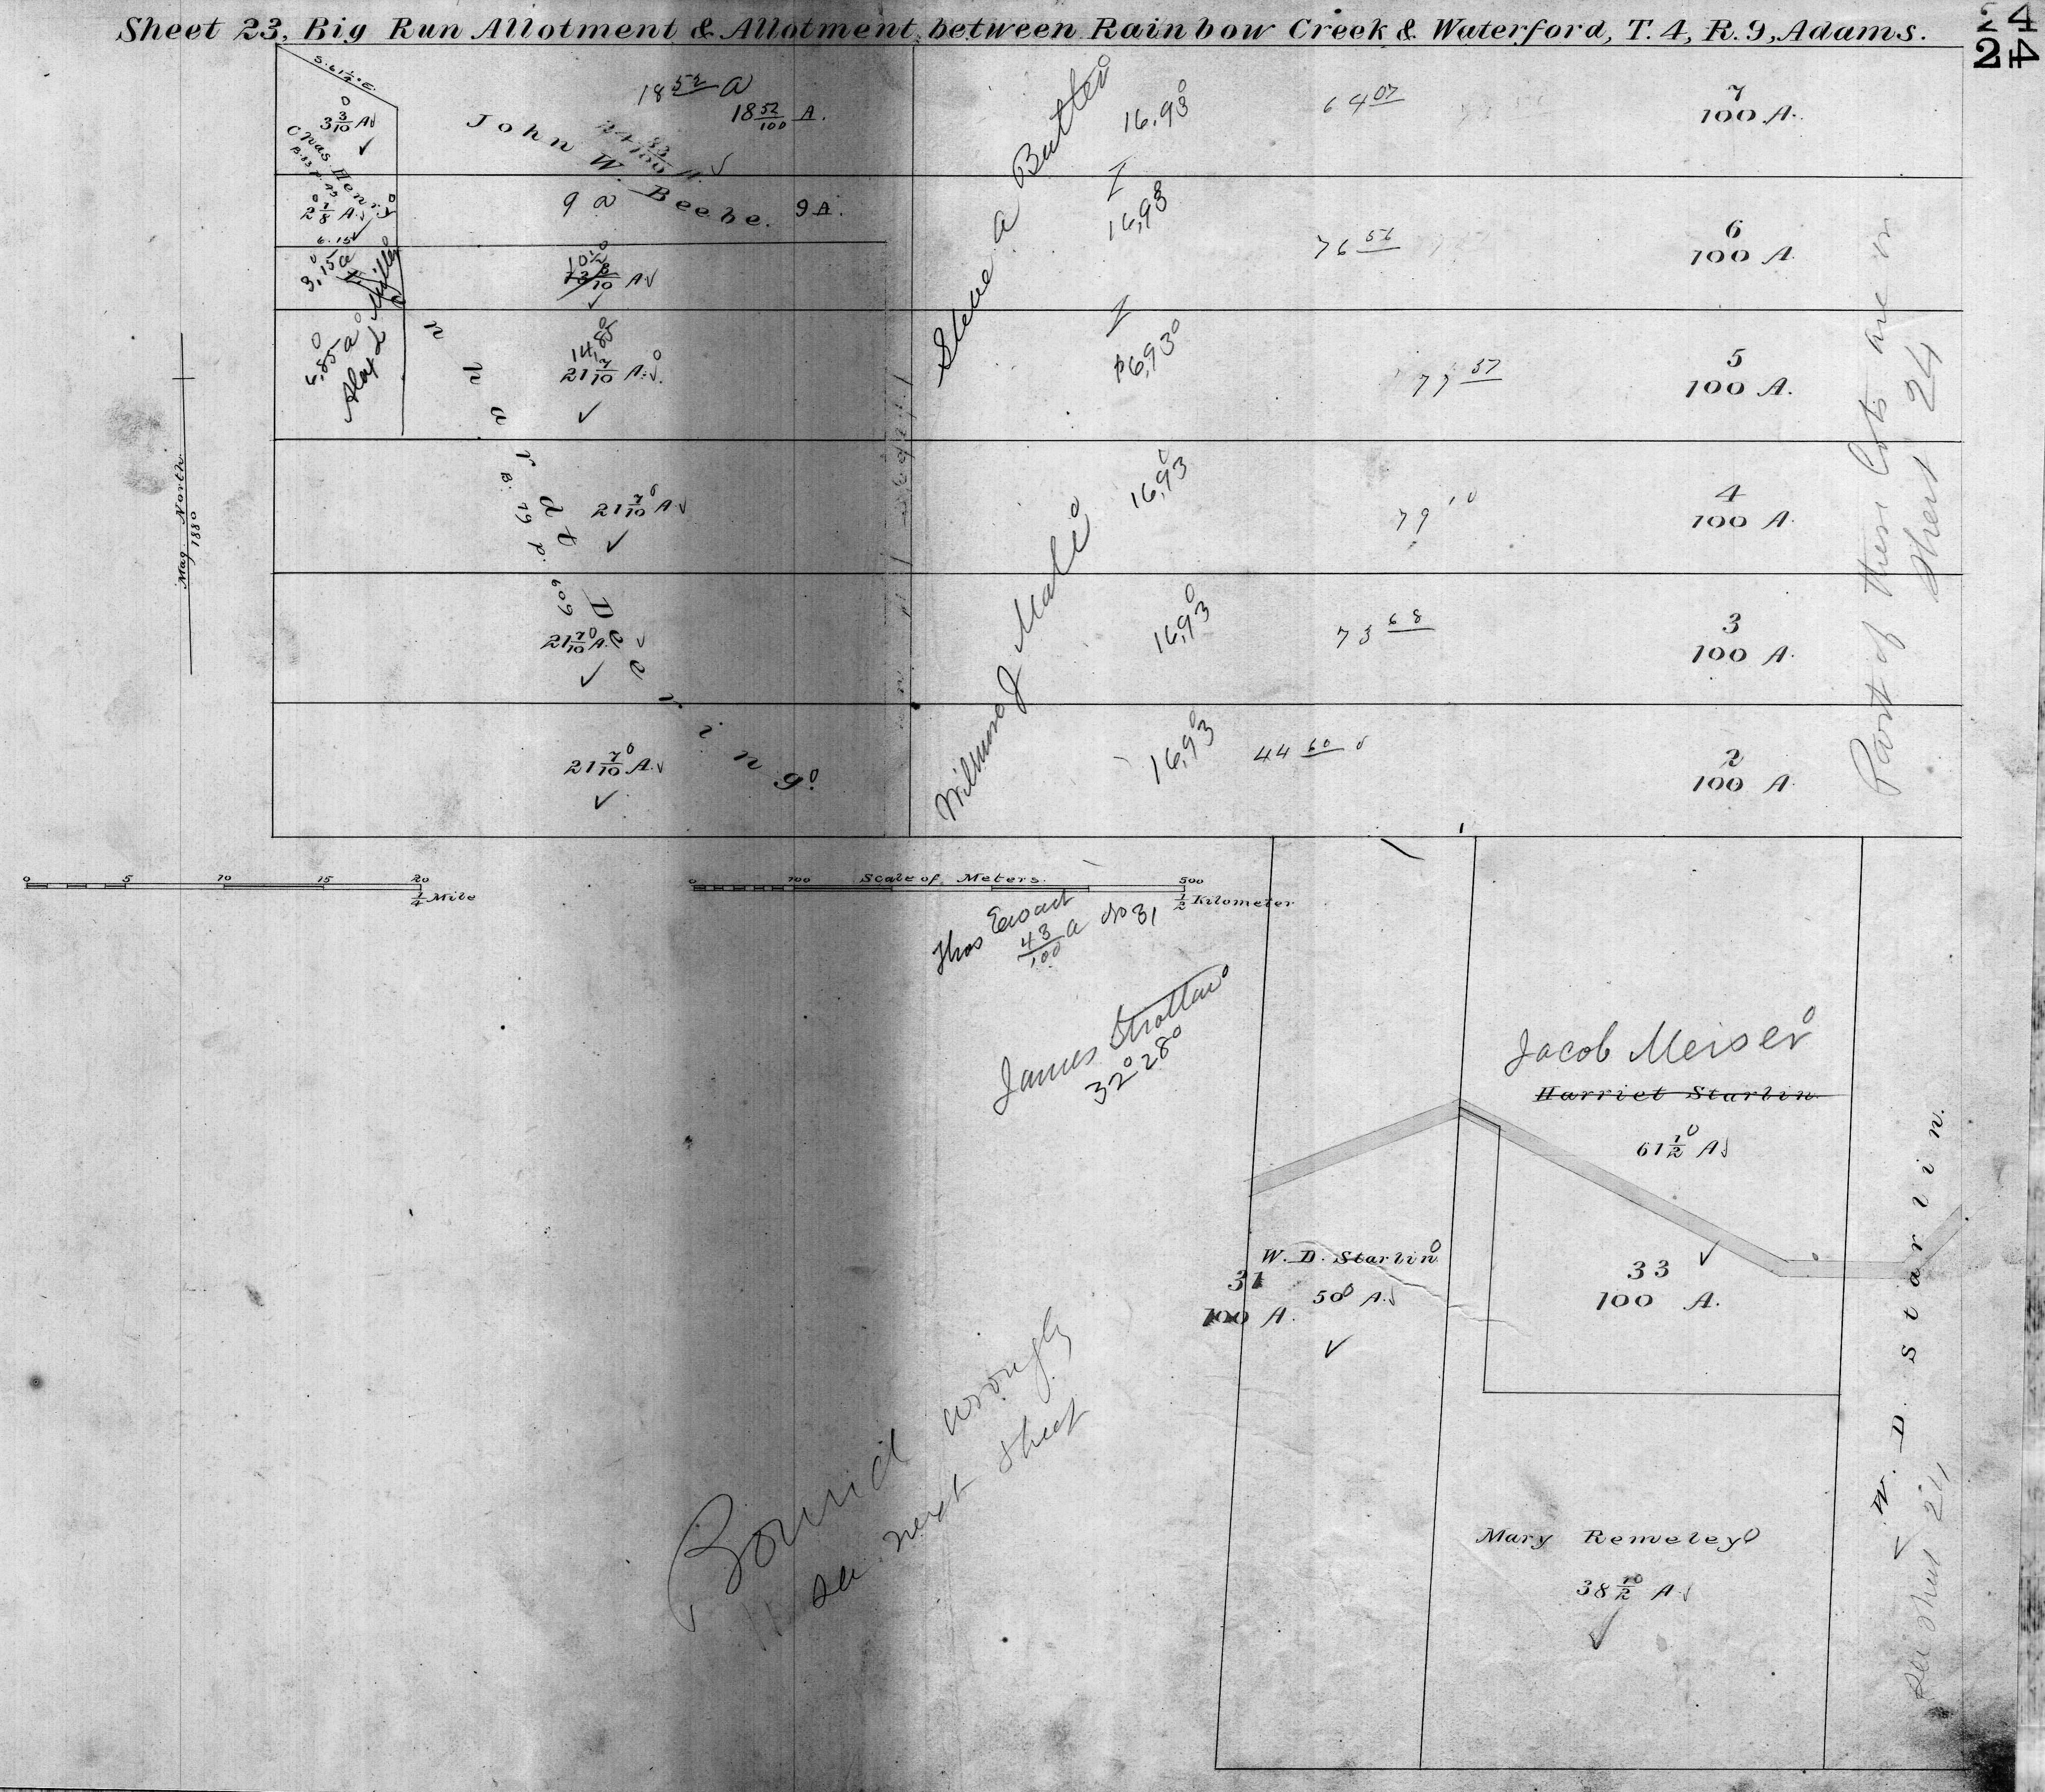 Sheet 23, Big Run Allotment & Allotment between Rainbow Creek & Waterford, T. 4, R. 9, Adams.
24
24
S. 61 1/4° E.
3 3/10 A
Chas. Henry
2 1/8 A.
6.15
3,15 a
Alex d Miller
6,85 a
18 52 a
18 52/100 A.
24 83/100 A.
John W. Beebe.
9 a
9 A.
10 1/2
13 8/10 A
14,85
21 7/10 A.
21 7/10 A
21 7/10 A.
21 7/10 A.
nhardt Deering
B. 79 P. 609
Steve a Butler
16,93
16,93
16,93
Wilmino J Malie
16,93
16,93
16,93
64 07
76 56
77 57
79 10
73 68
44 60
7
100 A.
6
100 A.
5
100 A.
4
100 A.
3
100 A.
2
100 A.
Part of these Lots are on
sheet 24
Mag. North
1880
0 5 10 15 20
1/4 Mile
0 100 Scale of Meters. 500
1/2 Kilometer
Thos Ewart
43/100 a No 31
James Strattan
32 28
Jacob Meiser
Harriet Starlin.
61 1/2 A
W. D. Starlin
31
50 A.
100 A.
33
100 A.
Mary Remeley
38 1/2 A
W. D. Starlin.
see sheet 24
Bound wrongly
see next sheet